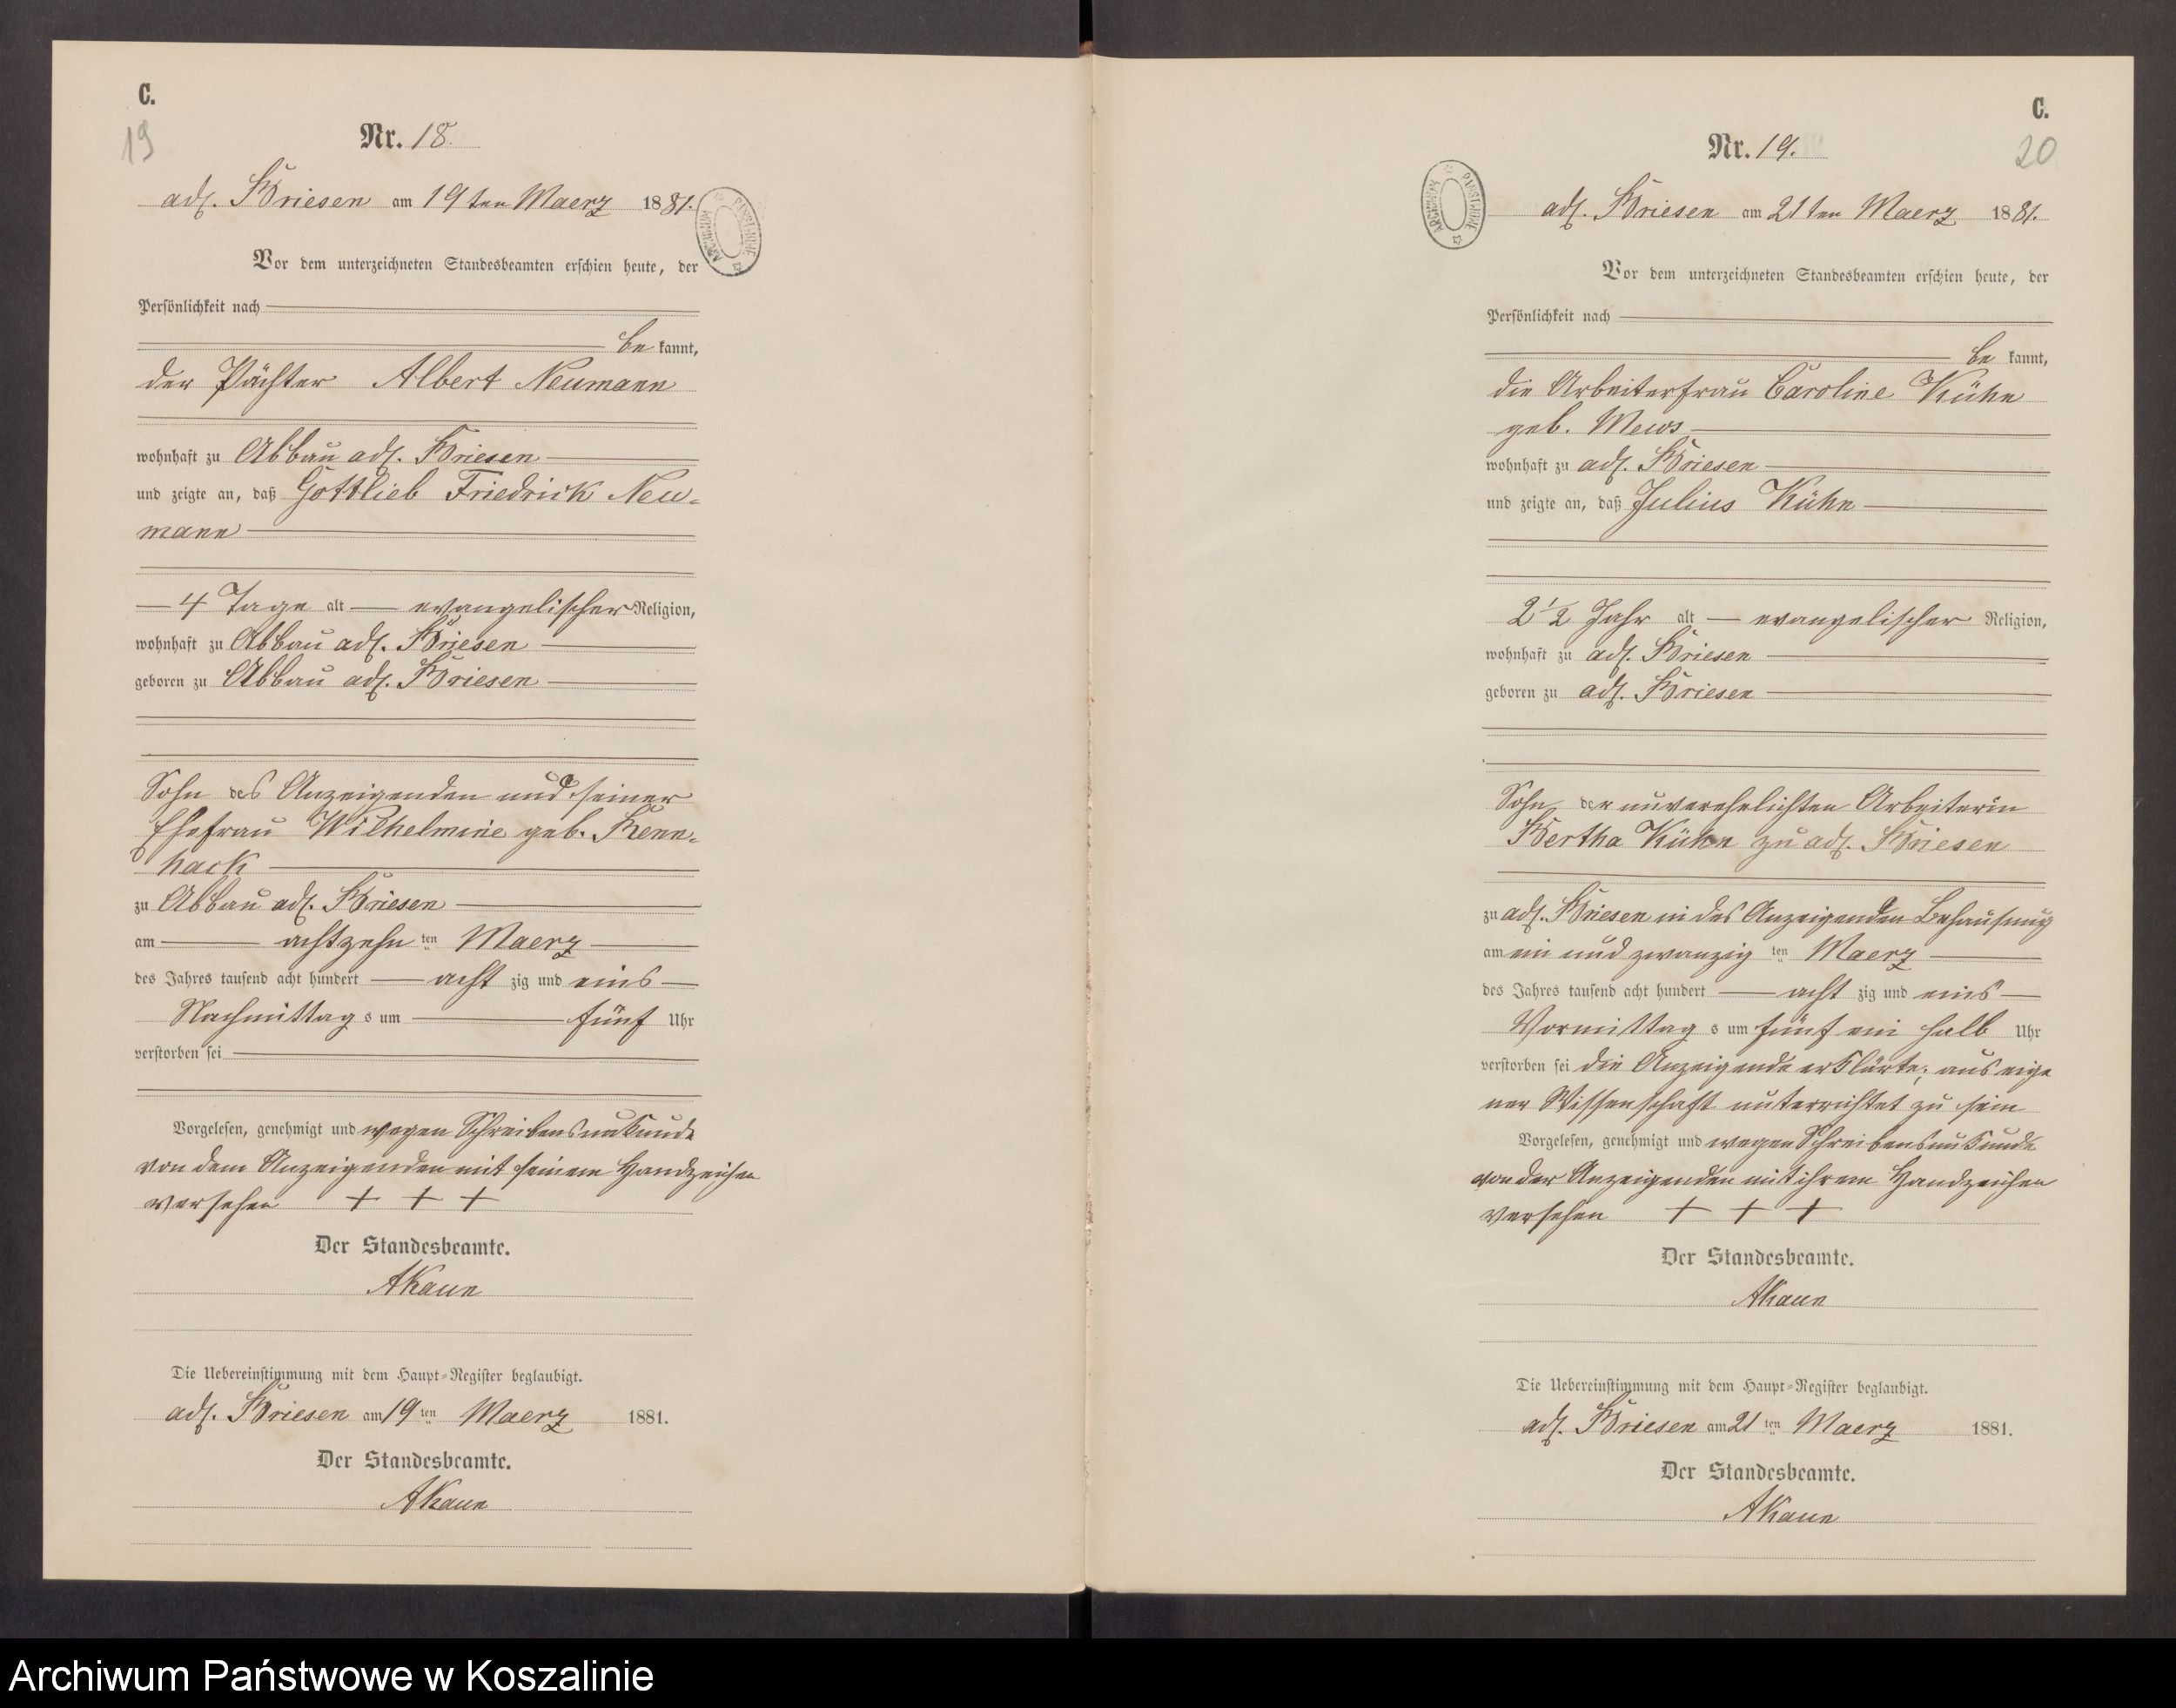 C.
19
Nr. 18.
adl. Briesen am 19ten Maerz 1881.
Vor dem unterzeichneten Standesbeamten erschien heute, der
Persönlichkeit nach
be kannt,
der Pächter Albert Neumann
wohnhaft zu Abbau adl. Briesen
und zeigte an, daß Gottlieb Friedrich Neu-
mann
4 Tage alt evangelischer Religion,
wohnhaft zu Abbau adl. Briesen
geboren zu Abbau adl. Briesen
Sohn des Anzeigenden und seiner
Ehefrau Wilhelmine geb.
hack
zu Abbau adl. Briesen
am achtzehn ten Maerz
des Jahres tausend acht hundert acht zig und eins
Nachmittag s um fünf Uhr
verstorben sei
Vorgelesen, genehmigt und wegen Schreibensunkunde
von dem Anzeigenden mit seinem Handzeichen
versehen + + +
Der Standesbeamte.
AKaun
Die Uebereinstimmung mit dem Haupt-Register beglaubigt.
adl. Briesen am 19 ten Maerz 1881.
Der Standesbeamte.
AKaun
C.
20
Nr. 19.
ARCHIWUM PAŃSTWOWE
adl. Briesen am 21ten Maerz 1881.
Vor dem unterzeichneten Standesbeamten erschien heute, der
Persönlichkeit nach
be kannt,
die Arbeiterfrau Caroline Kühn
geb. Mews
wohnhaft zu adl. Briesen
und zeigte an, daß Julius Kühn
2 1/2 Jahr alt evangelischer Religion,
wohnhaft zu adl. Briesen
geboren zu adl. Briesen
Sohn der unverehelichten Arbeiterin
Bertha Kühn zu adl. Briesen
zu adl. Briesen in des Anzeigenden Behausung
am ein und zwanzig ten Maerz
des Jahres tausend acht hundert acht zig und eins
Vormittag s um fünf ein halb Uhr
verstorben sei die Anzeigende erklärte; aus eige
ner Wissenschaft unterrichtet zu sein
Vorgelesen, genehmigt und wegen Schreibensunkunde
von der Anzeigenden mit ihrem Handzeichen
versehen + + +
Der Standesbeamte.
AKaun
Die Uebereinstimmung mit dem Haupt-Register beglaubigt.
adl. Briesen am 21 ten Maerz 1881.
Der Standesbeamte.
AKaun
Archiwum Państwowe w Koszalinie